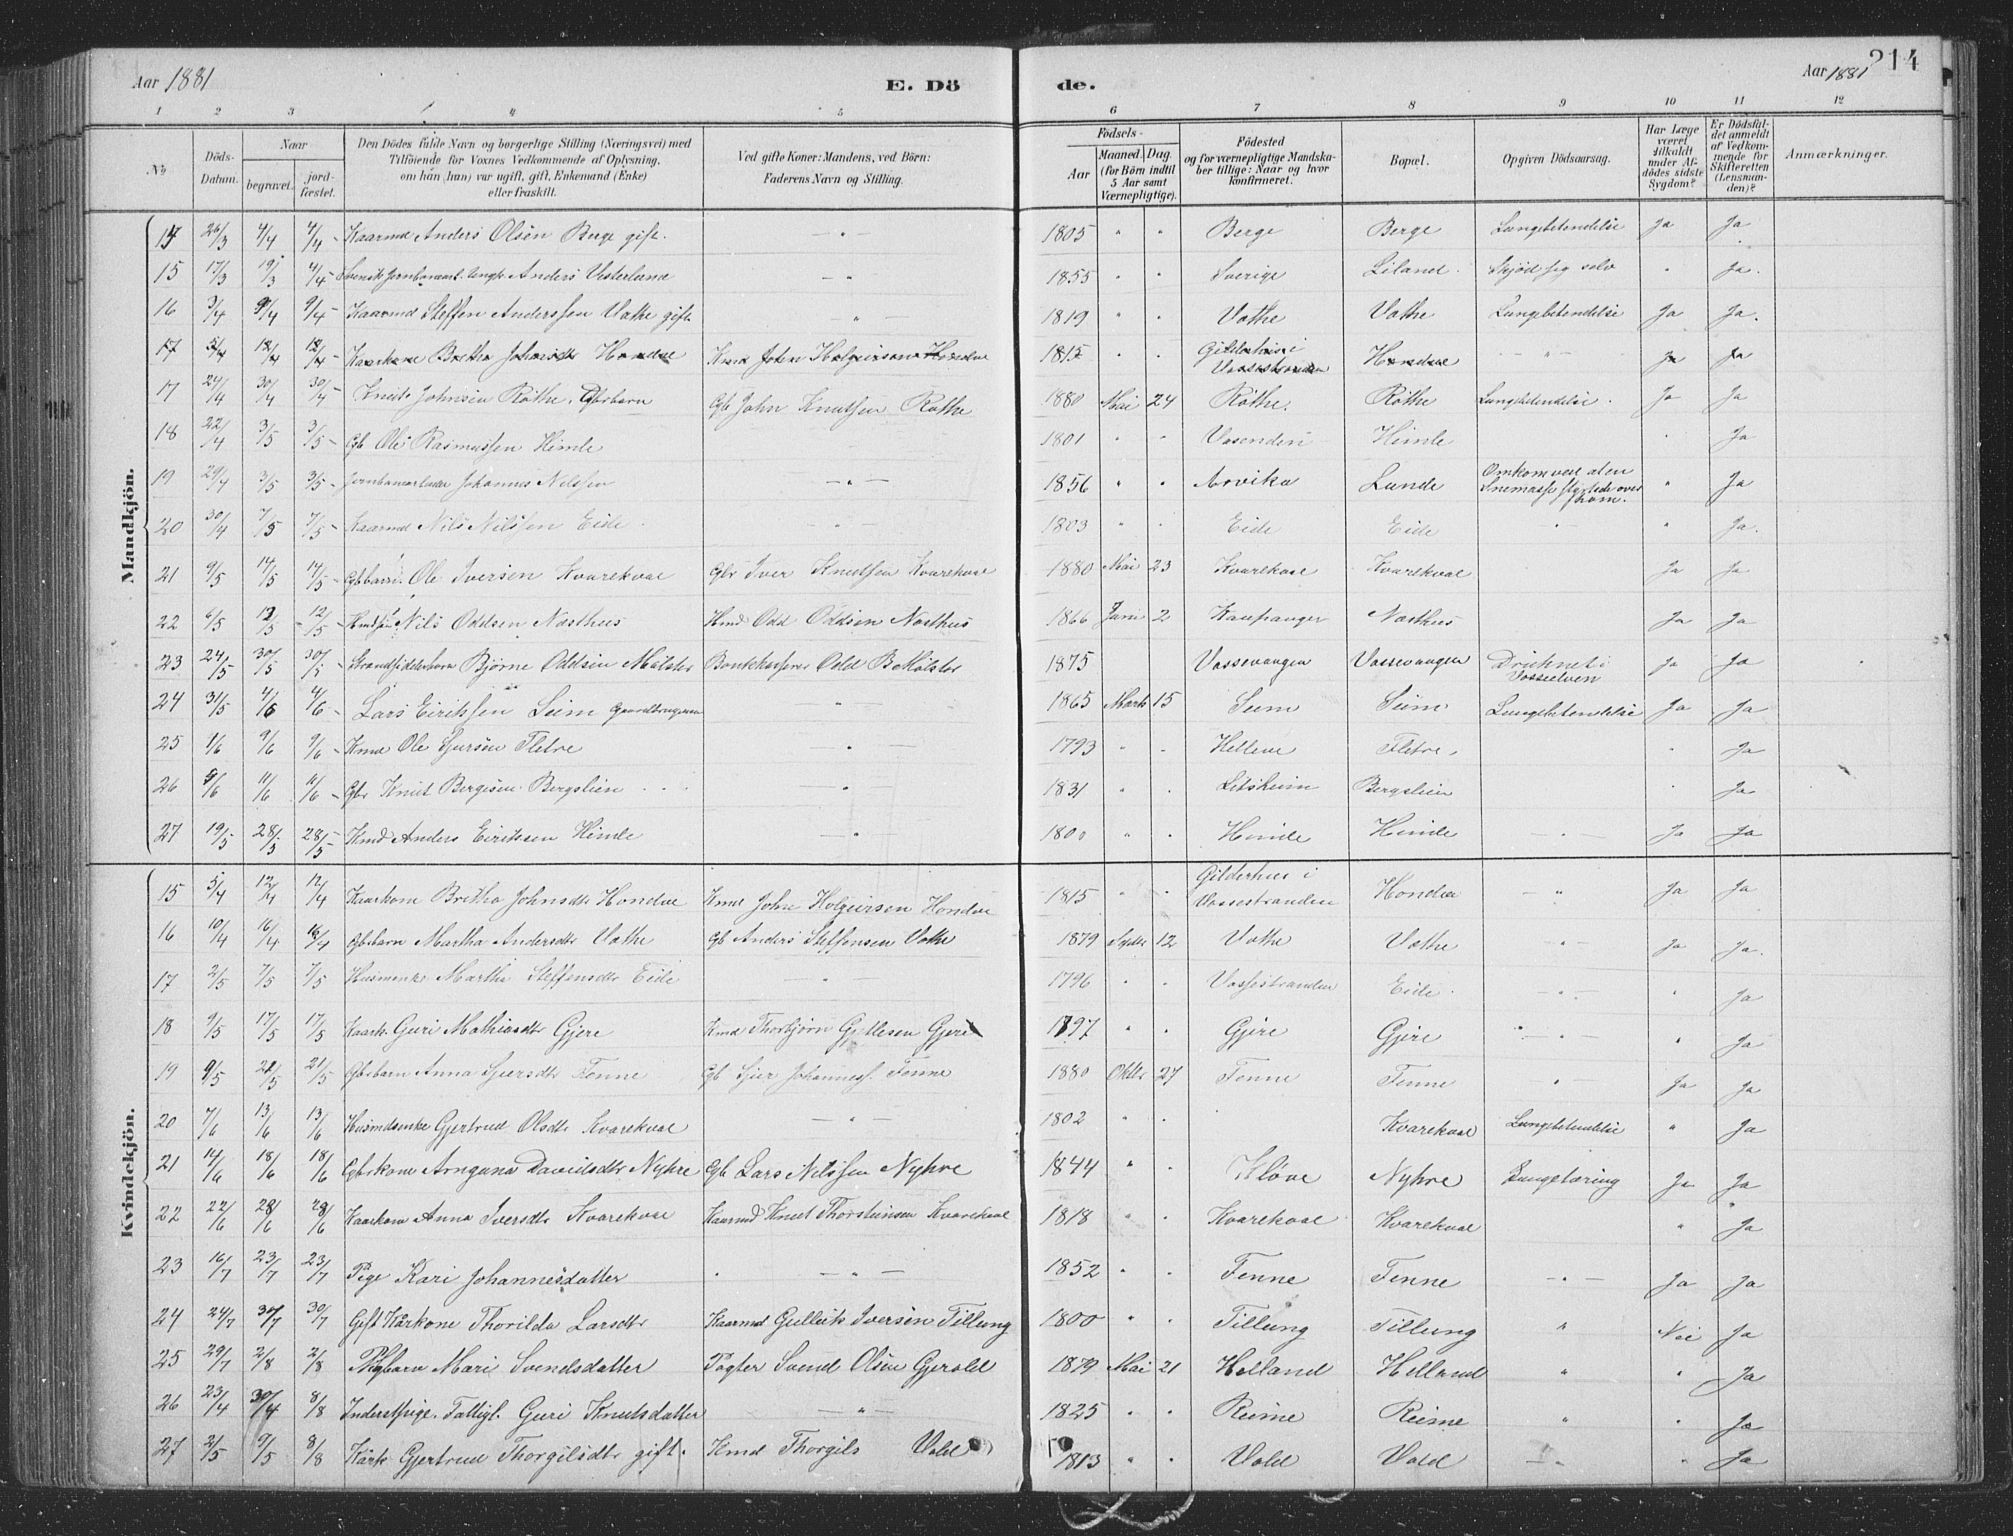 Aar 1881 E. Dö de. Aar 1881 214
1 2 3 4 5 6 7 8 9 10 11 12
No. Döds-Datum. Naar begravet. jordfæstet. Den Dödes fulde Navn og borgerlige Stilling (Næringsvei) med Tilföiende for Voxnes Vedkommende af Oplysning, om han (hun) var ugift, gift, Enkemand (Enke) eller fraskilt. Ved gifte Koner: Mandens, ved Börn: Faderens Navn og Stilling. Födsels- Aar Maaned. Dag. (for Börn indtil 5 Aar samt Værnepligtige). Födested og for værnepligtige Mandskaber tillige: Naar og hvor konfirmeret. Bopæl. Opgiven Dödsaarsag. Har Læge været tilkaldt under Afdödes sidste Sygdom? Er Dödsfaldet anmeldt af Vedkommende for Skifteretten (Lensmanden)? Anmærkninger.
Mandkjön.
26/3 4/4 4/4 Kaarmd Anders Olsen Berge gift. — " — 1805 " " Berge Berge Lungebetendelse Ja Ja
15 17/3 19/3 4/4 Anders Vesterlund — " — 1855 " " Sverige Liland Skjød seg selv " Ja.
16 3/4 9/4 9/4 Kaarmd Steffen Anderssen Vathe gift. " 1819 " " Vathe Vathe Lungebetendelse Ja Ja.
17 5/4 12/4 12/4 Kaarkone Bretha Johnsdtr Hondve Kmd John Holgeirsen Hondve 1815 " " Gilderhus i Vossestranden Hondve — " — Ja Ja
17 24/4 30/4 30/4 Knut Johnsen Røthe, Gbrbarn Gb John Knutsen Røthe 1880 Mai 24 Røthe. Røthe Lungebetendelse. Ja Ja
18 22/4 3/5 3/5 Gb Ole Rasmussen Himle 1801 " " Vasenden Himle " Ja
19 29/4 3/5 3/5 Jernbanearbeider Johannes Nilssen — " — 1856 " " Arvika Lunde Omkom ved at en Snemasse styrtede over ham. " Ja
20 30/4 7/5 7/5 Kaarmd Nils Nilssen Eide. " 1803 " " Eide Eide " " Ja.
21 9/5 17/5 17/5 Gbbarn. Ole Iversen Kvarekval Gbr Iver Knutsen Kvarekval 1880 Mai 23 Kvarekval Kvarekval Ja Ja
22 6/5 12/5 12/5 Nils Oddsen Næsthus Hmd Odd Oddsen Næsthus 1866 Juni 2 Kaupanger Næsthus Ja Ja
23 24/5 30/5 30/5 Strandsidderbarn Bjørne Oddsen Mølster Odd B Mølster 1875 Vossevangen Vossevangen Druknet i Vosseelven Ja Ja
24 31/5 4/6 4/6 Lars Eiriksen Seim — " — 1865 Marts 15 Seim Seim Lungebetendelse Ja Ja
25 1/6 9/6 9/6 Kmd Ole Sjursen Fletre " 1793 " " Helleve Fletre. " Ja
26 5/6 11/6 11/6 Gbr Knut Bergesen Bergslien — " — 1831 " " Litsheim Bergslien " Ja
27 19/5 28/5 28/5 Kmd Anders Eiriksen Himle — " — 1800 " " Himle Himle — " — Ja Ja
Kvindekjön.
15 5/4 12/4 12/4 Kaarkone Bretha Johnsdtr Hondve Kmd John Holgeirsen Hondve 1815 " " Gilderhus i Vossestranden Hondve — " — Ja Ja
16 10/4 16/4 16/4 Gbrbarn Martha Andersdtr Vathe Gb Anders Steffensen Vathe 1879 Septbr 12 Vathe Vathe — " — Ja Ja.
17 2/5 7/5 7/5 Husmenk Martha Steffensdtr Eide — " — 1796 " " Vossestranden Eide. — " — Ja
18 9/5 17/5 17/5 Kaark. Guri Mathiasdtr Gjere Kmd Thorbjørn Gjere 1797 " " Gjere Gjere — " — " Ja
19 9/5 21/5 21/5 Gbrbarn Anna Sjursdtr Tenne Gb Sjur Johanness. Tenne 1880 Oktbr 27 Tenne Tenne — " — Ja Ja
20 7/6 13/6 13/6 Husmdsenke Gjertrud Olsdtr Kvarekval — " — 1802 " " Kvarekval Lungebetendelse " Ja
21 14/6 18/6 18/6 Gbrkone Arnguna Davidsdtr Nyhre Gb Lars Nilssen Nyhre 1844 " " Kløve Nyhre Lungetæring Ja Ja
22 22/6 28/6 28/6 Kaarkone Anna Iversdtr Kvarekval Kaarmd Knut Thorsteinsen Kvarekval 1818 " " Kvarekval Kvarekval " Ja
23 16/7 23/7 23/7 Pige Kari Johannesdatter — " — 1852 " " Tenne Tenne — " — Ja Ja
24 24/7 30/7 30/7 Gift Kårkone Thorilda Larsdtr Kaarmd Gulleik Iversen Tillung 1800 " " Tillung Tillung " Nei Ja
25 29/7 2/8 2/8 Mari Svendsdatter Pagter Svend Olsen Gjerald 1879 Mai 21 Helland Helland " " Ja
26 23/4 30/4 8/8 Inderstpige. Fattigl. Guri Knutsdatter — " — 1825 " " Reime Reime " " Ja
27 2/5 9/5 8/8 Kårk. Gjertrud Thorgilsdtr gift. Kmd Thorgils Vold 1813 " " Vold Vold — " — " Ja